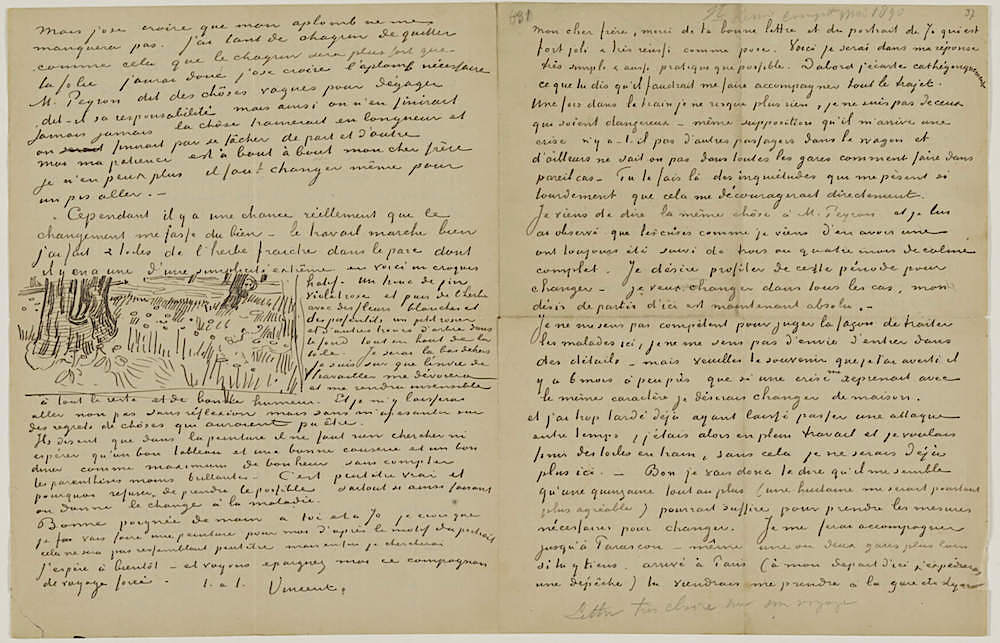 Mais j'ose croire que mon aplomb ne me
manquera pas. j'ai tant de chagrin de quitter
comme cela que le chagrin sera plus fort que
la folie j'aurai donc j'ose croire l'aplomb nécessaire
M. Peyron dit des chôses vagues pour dégager
dit-il sa responsabilité mais ainsi on n'en finirait
jamais jamais la chôse trainerait en longueur et
on finirait par se fâcher de part et d'autre
moi ma patience est à bout à bout mon cher frère
je n'en peux plus il faut changer même pour
un pis aller. –
Cependant il y a une chance réellement que le
changement me fasse du bien – le travail marche bien
j'ai fait 2 toiles de l'herbe fraiche dans le parc dont
il y en a une d'une simplicité extrême en voici un croquis
hatif. Un tronc de pin
violet rose et puis de l'herbe
avec des fleurs blanches et
des pissenlits, un petit rosier
et d'autres troncs d'arbre dans
le fond tout en haut de la
toile. Je serai là bas dehors
je suis sur que l'envie de
travailler me dévorera
et me rendra insensible
à tout le reste et de bonne humeur. Et je m'y laisserai
aller non pas sans réflexion mais sans m'apesantir sur
des regrets de chôses qui auraient pu être.
Ils disent que dans la peinture il ne faut rien chercher ni
espérer qu'un bon tableau et une bonne causerie et un bon
diner comme maximum de bonheur sans compter
les parenthèses moins brillantes. – C'est peutêtre vrai et
pourquoi refuser de prendre le possible surtout si ainsi faisant
on donne le change à la maladie.
Bonne poignée de main à toi et à Jo je crois que
je vais faire une peinture pour moi d'après le motif du portrait
cela ne sera pas ressemblant peutêtre mais enfin je chercherai
j'espère à bientôt – et voyons épargnez moi ce compagnon
de voyage forcé. t. à t. Vincent,
631
St Remi mai 1890
37
Mon cher frère, merci de ta bonne lettre et du portrait de Jo qui est
fort joli & très réussi comme pose. Voici je serai dans ma réponse
très simple & aussi pratique que possible. D'abord j'écarte cathégoriquement
ce que tu dis qu'il faudrait me faire accompagner tout le trajet.
Une fois dans le train je ne risque plus rien, je ne suis pas de ceux
qui soient dangereux – même supposition qu'il m'arrive une
crise n'y a-t-il pas d'autres passagers dans le wagon et
d'ailleurs ne sait on pas dans toutes les gares comment faire dans
pareil cas – Tu te fais là des inquiétudes qui me pèsent si
lourdement que cela me découragerait directement.
Je viens de dire la même chôse à M. Peyron et je lui
ai observé que les crises comme je viens d'en avoir une
ont toujours été suivi de trois ou quatre mois de calme
complet. Je désire profiter de cette période pour
changer – je veux changer dans tous les cas, mon
désir de partir d'ici est maintenant absolu –
Je ne me sens pas compétent pour juger la façon de traiter
les malades ici, je ne me sens pas d'envie d'entrer dans
des détails – mais veuilles te souvenir que je t'ai averti il
y a 6 mois à peu près que si une crise me reprenait avec
le même caractère je désirerais changer de maison.
et j'ai trop tardé déjà ayant laissé passer une attaque
entre temps, j'étais alors en plein travail et je voulais
finir des toiles en train, sans cela je ne serais déjà
plus ici. – Bon je vais donc te dire qu'il me semble
qu'une quinzaine tout au plus (une huitaine me serait pourtant
plus agréable) pourrait suffire pour prendre les mesures
nécessaires pour changer. Je me ferai accompagner
jusqu'à Tarascon – même une ou deux gares plus loin
si tu y tiens. arrivé à Paris (à mon départ d'ici j'expédierai
une dépêche) tu viendrais me prendre à la gare de Lyon
Lettre très claire sur son voyage